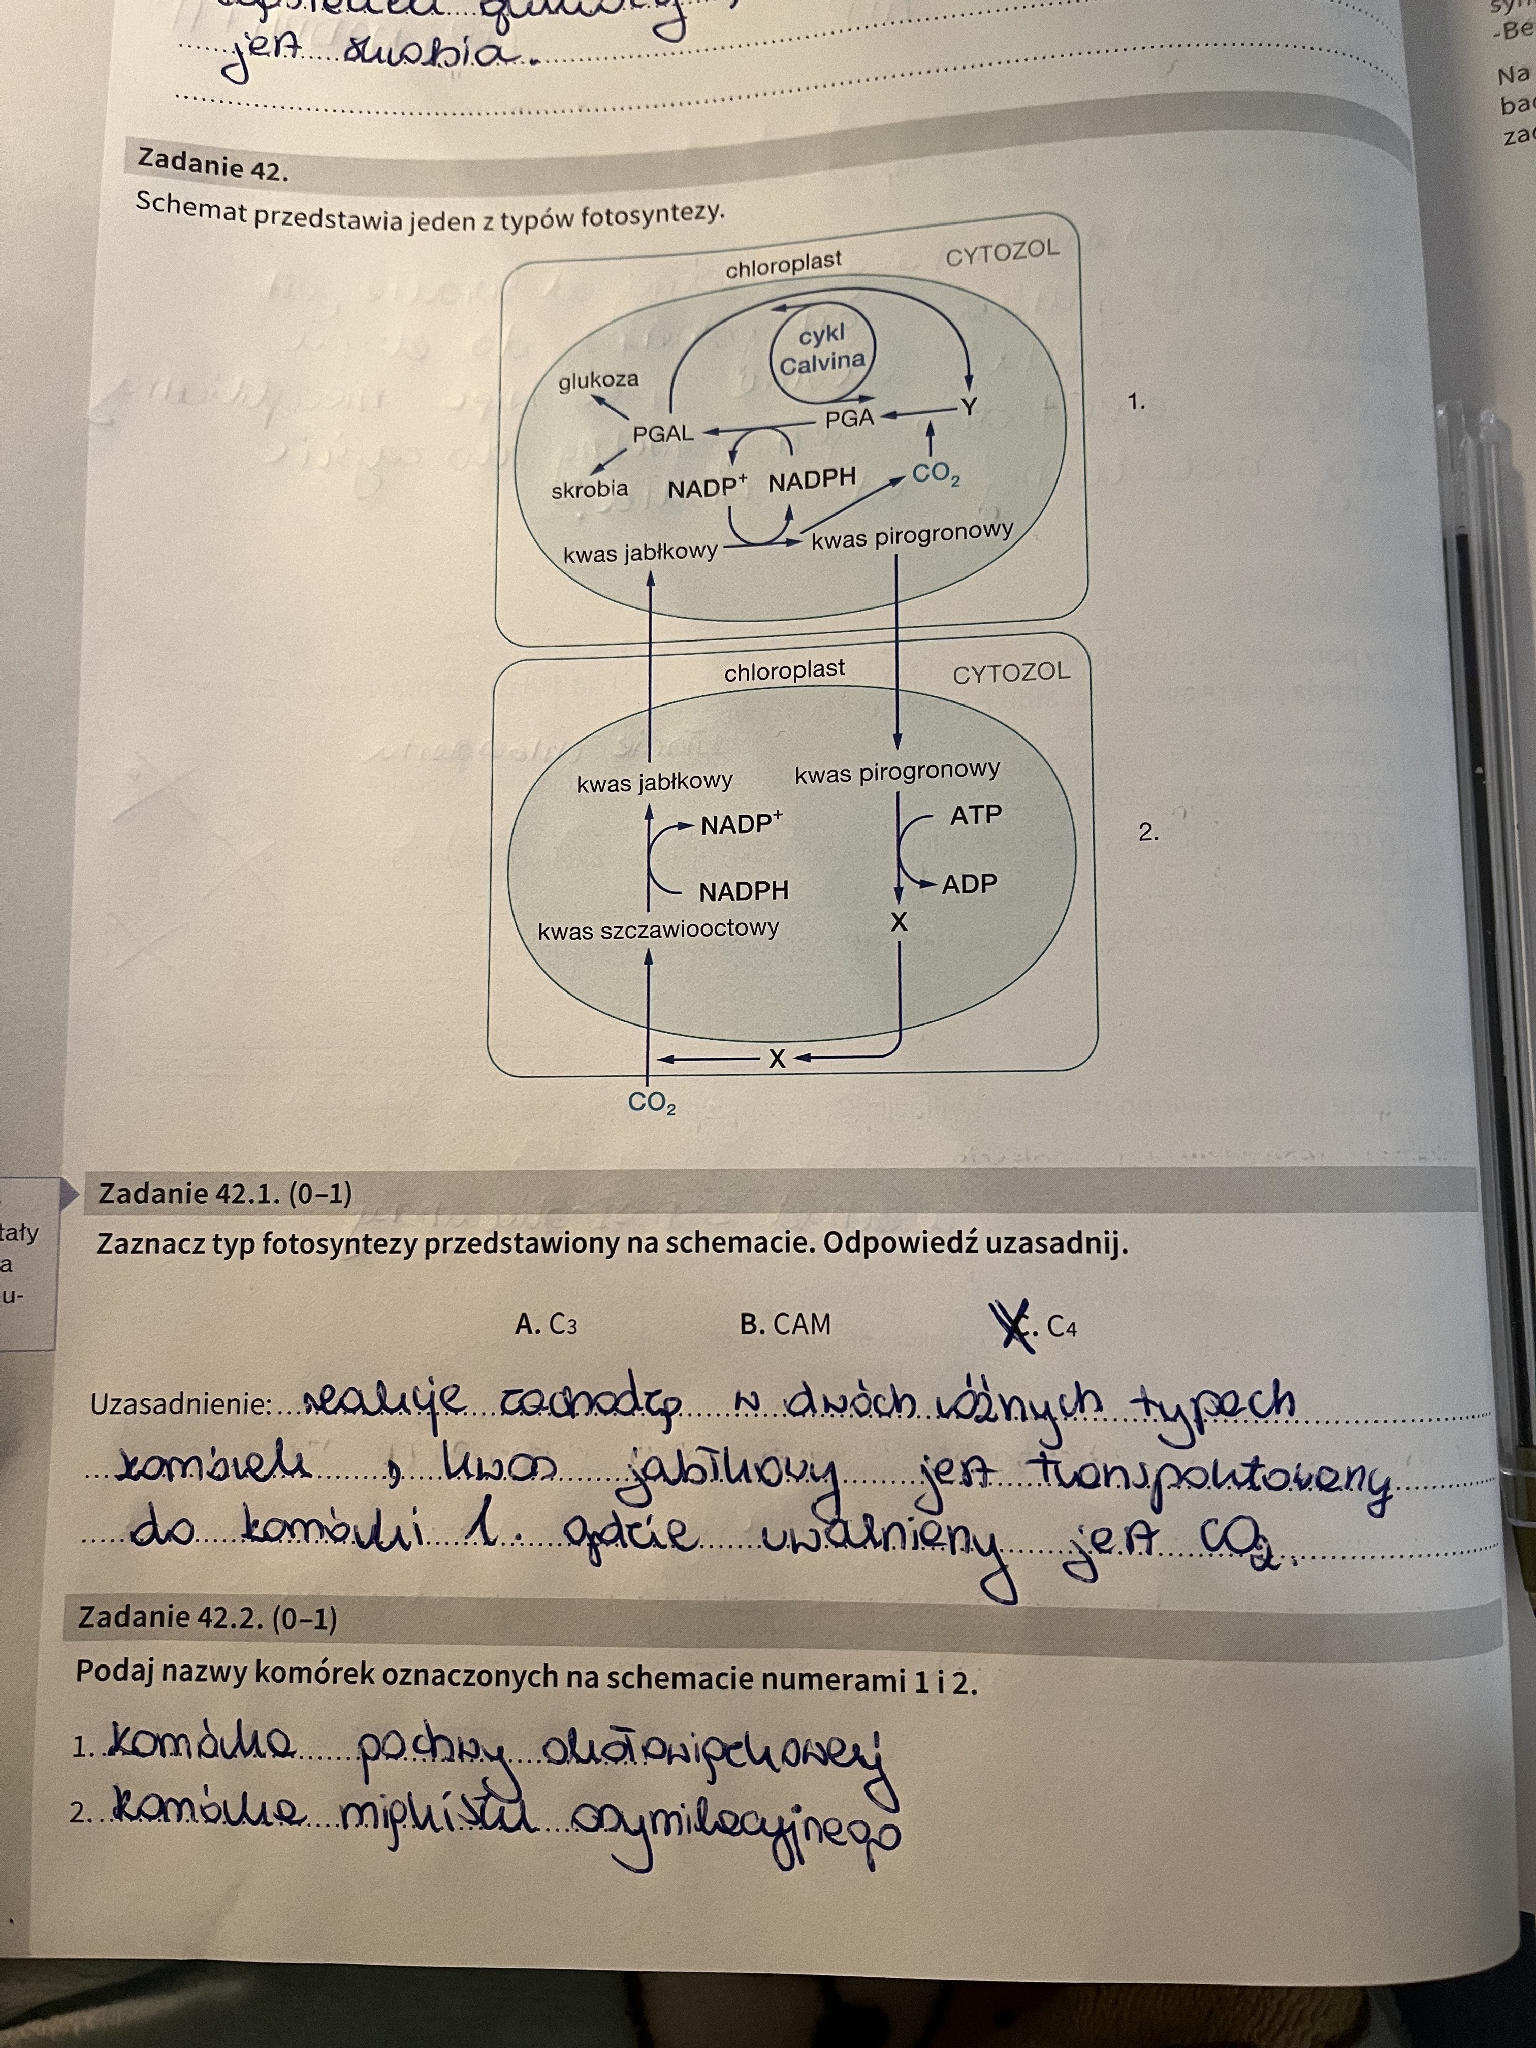 jest skrobia.
sym
-Be
Na
bad
zad
Zadanie 42.
Schemat przedstawia jeden z typów fotosyntezy.
chloroplast
CYTOZOL
cykl
Calvina
glukoza
PGAL
PGA
Y
1.
skrobia
NADP⁺
NADPH
CO₂
kwas jabłkowy
kwas pirogronowy
chloroplast
CYTOZOL
kwas jabłkowy
kwas pirogronowy
NADP⁺
ATP
2.
NADPH
ADP
kwas szczawiooctowy
X
X
CO₂
tały
a
u-
Zadanie 42.1. (0–1)
Zaznacz typ fotosyntezy przedstawiony na schemacie. Odpowiedź uzasadnij.
A. C₃ B. CAM C. C₄
Uzasadnienie: reakcje zachodzą w dwóch różnych typach
komórek, kwas jabłkowy jest transportowany
do komórki 1. gdzie uwalniany jest CO₂.
Zadanie 42.2. (0–1)
Podaj nazwy komórek oznaczonych na schemacie numerami 1 i 2.
1. komórka pochwy okołowiązkowej
2. komórka miękiszu asymilacyjnego